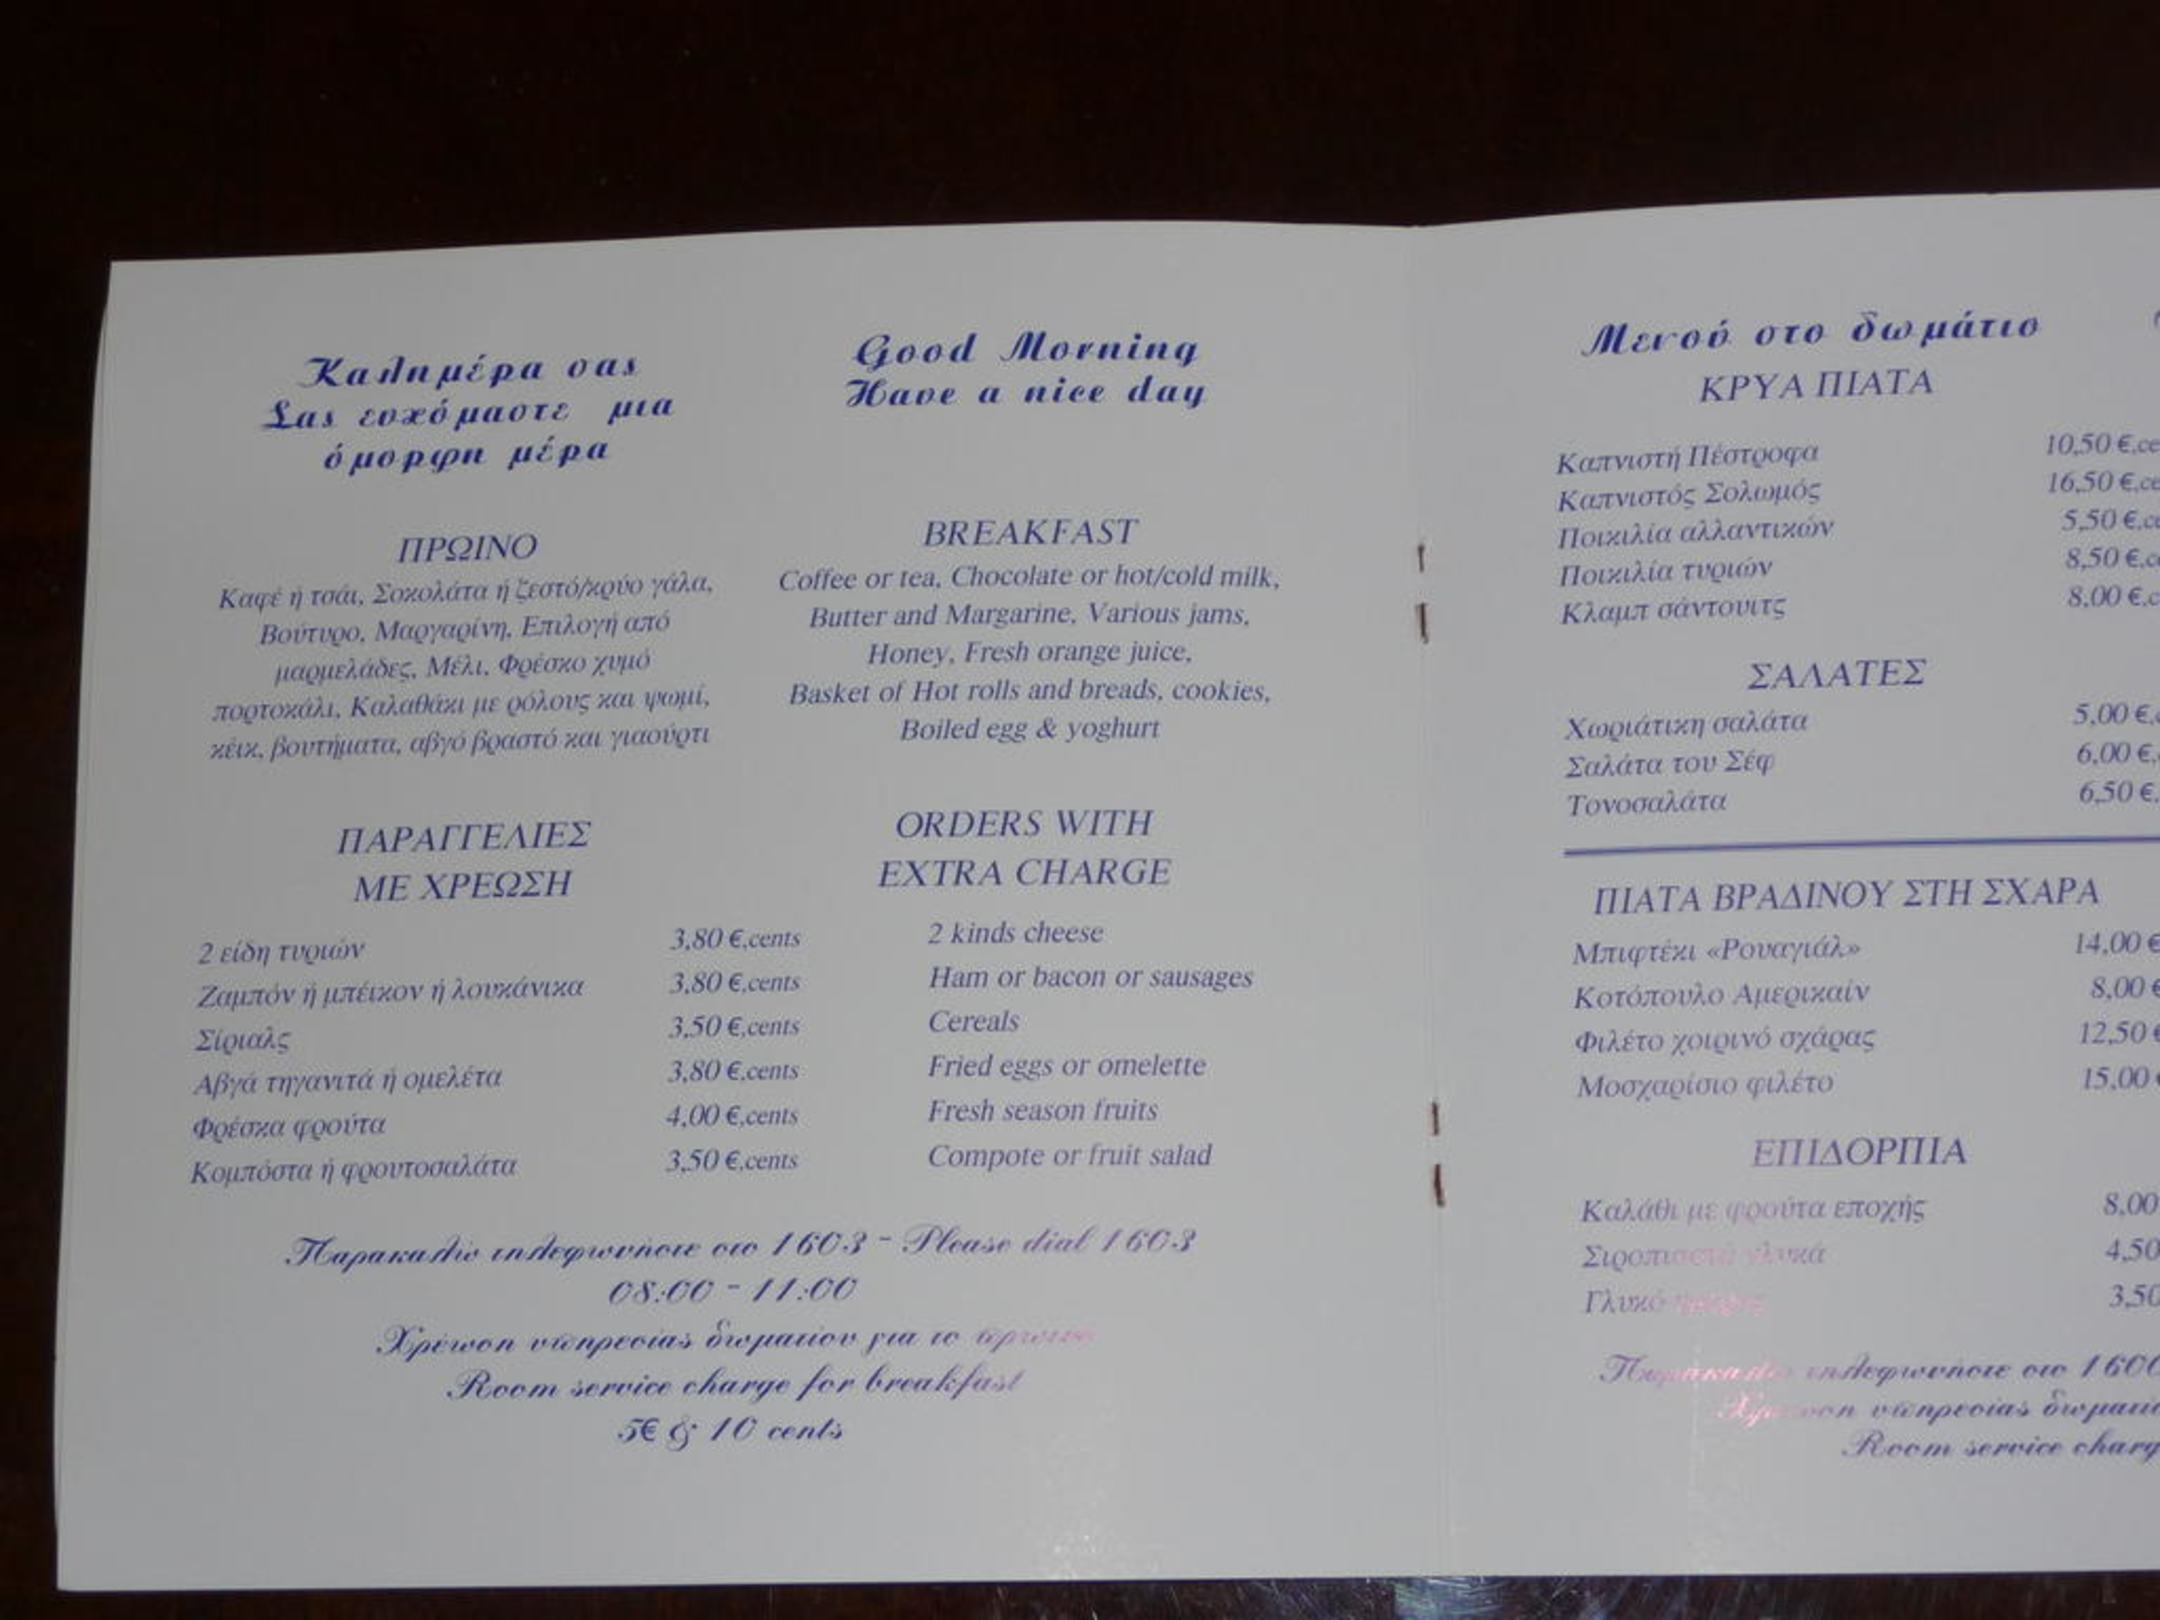 Καλημέρα σας
Σας ευχόμαστε μια
όμορφη μέρα
Good Morning
Have a nice day
ΠΡΩΙΝΟ
Καφέ ή τσάι, Σοκολάτα ή ζεστό/κρύο γάλα,
Βούτυρο, Μαργαρίνη, Επιλογή από
μαρμελάδες, Μέλι, Φρέσκο χυμό
πορτοκάλι, Καλαθάκι με ρόλους και ψωμί,
κέικ, βουτήματα, αβγό βραστό και γιαούρτι
BREAKFAST
Coffee or tea, Chocolate or hot/cold milk,
Butter and Margarine, Various jams,
Honey, Fresh orange juice,
Basket of Hot rolls and breads, cookies,
Boiled egg & yoghurt
ΠΑΡΑΓΓΕΛΙΕΣ
ΜΕ ΧΡΕΩΣΗ
ORDERS WITH
EXTRA CHARGE
2 είδη τυριών 3,80 €,cents 2 kinds cheese
Ζαμπόν ή μπέικον ή λουκάνικα 3,80 €,cents Ham or bacon or sausages
Σίριαλς 3,50 €,cents Cereals
Αβγά τηγανιτά ή ομελέτα 3,80 €,cents Fried eggs or omelette
Φρέσκα φρούτα 4,00 €,cents Fresh season fruits
Κομπόστα ή φρουτοσαλάτα 3,50 €,cents Compote or fruit salad
Παρακαλώ τηλεφωνήστε στο 1603 - Please dial 1603
08:00 - 11:00
Χρέωση υπηρεσίας δωματίου για το πρωινό
Room service charge for breakfast
5€ & 10 cents
Μενού στο δωμάτιο
ΚΡΥΑ ΠΙΑΤΑ
Καπνιστή Πέστροφα 10,50 €,ce
Καπνιστός Σολωμός 16,50 €,ce
Ποικιλία αλλαντικών 5,50 €,ce
Ποικιλία τυριών 8,50 €,ce
Κλαμπ σάντουιτς 8,00 €,c
ΣΑΛΑΤΕΣ
Χωριάτικη σαλάτα 5,00 €,
Σαλάτα του Σέφ 6,00 €,
Τονοσαλάτα 6,50 €,
ΠΙΑΤΑ ΒΡΑΔΙΝΟΥ ΣΤΗ ΣΧΑΡΑ
Μπιφτέκι «Ρουαγιάλ» 14,00 €
Κοτόπουλο Αμερικαίν 8,00 €
Φιλέτο χοιρινό σχάρας 12,50 €
Μοσχαρίσιο φιλέτο 15,00
ΕΠΙΔΟΡΠΙΑ
Καλάθι με φρούτα εποχής 8,00
Σιροπιαστά γλυκά 4,50
Γλυκό 3,50
Παρακαλώ τηλεφωνήστε στο 1600
Χρέωση υπηρεσίας δωματίο
Room service charg